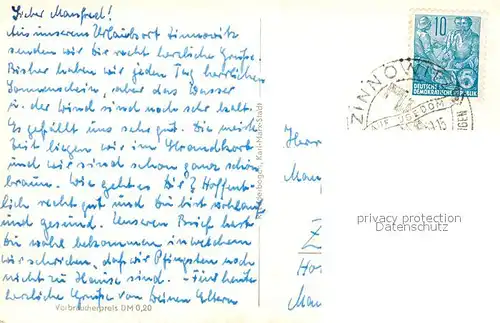 Lieber Manfred!
Aus unserem Urlaubsort Zinnowitz
senden wir Dir recht herzliche Grüße.
Bisher haben wir jeden Tag herrlichen
Sonnenschein, aber das Wasser
u. der Wind sind noch sehr kalt.
Es gefällt uns sehr gut. Die meiste
Zeit liegen wir im Strandkorb
und wir sind schon ganz schön
braun. Wie geht es Dir? Hoffent-
lich recht gut und du bist wohlauf
und gesund. Unseren Brief hast
du wohl bekommen in welchem
wir schrieben, daß wir Pfingsten noch
nicht zu Hause sind. – Für heute
herzliche Grüße von Deinen Eltern
Verbraucherpreis DM 0,20
Karl-Marx-Stadt
10
DEUTSCHE
DEMOKRATISCHE REPUBLIK
ZINNOWITZ
USEDOM
Herr
Man
Z
Ho
privacy protection
Datenschutz